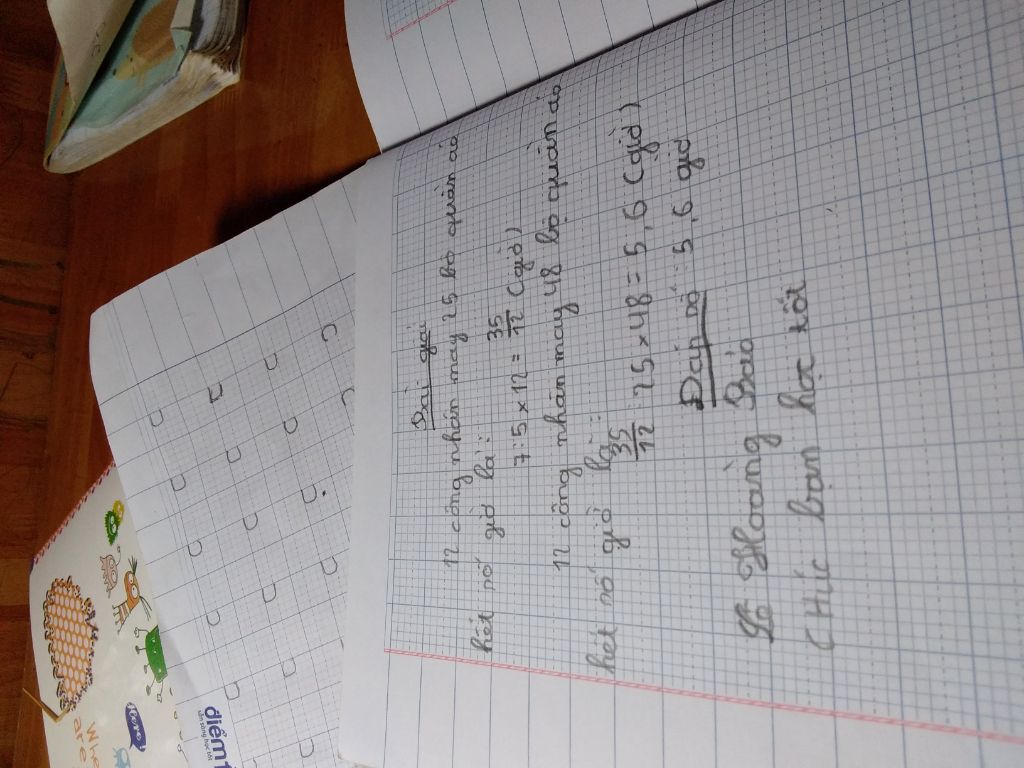 Bài giải
12 công nhân may 25 bộ quần áo
hết số giờ là:
7:5×12 = 35/12 (giờ)
12 công nhân may 48 bộ quần áo
hết số giờ là:
35/12 : 25×48 = 5,6 (giờ)
Đáp số 5,6 giờ
Hoàng Bảo
(Húc bạn học tốt
điểm